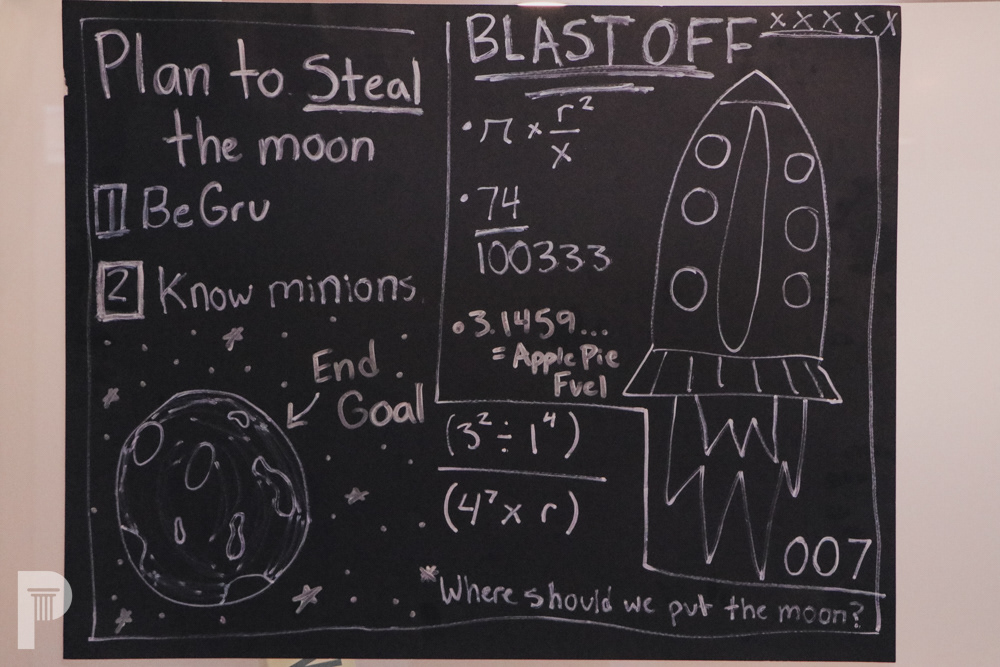 Plan to Steal
the moon
1 Be Gru
2 Know minions.
End
Goal
BLAST OFF
x x x x x
• π × r²/x
• 74
100333
• 3.1459...
= Apple Pie
Fuel
(3² ÷ 1⁴)
(4⁷ x r)
007
*Where should we put the moon?
P